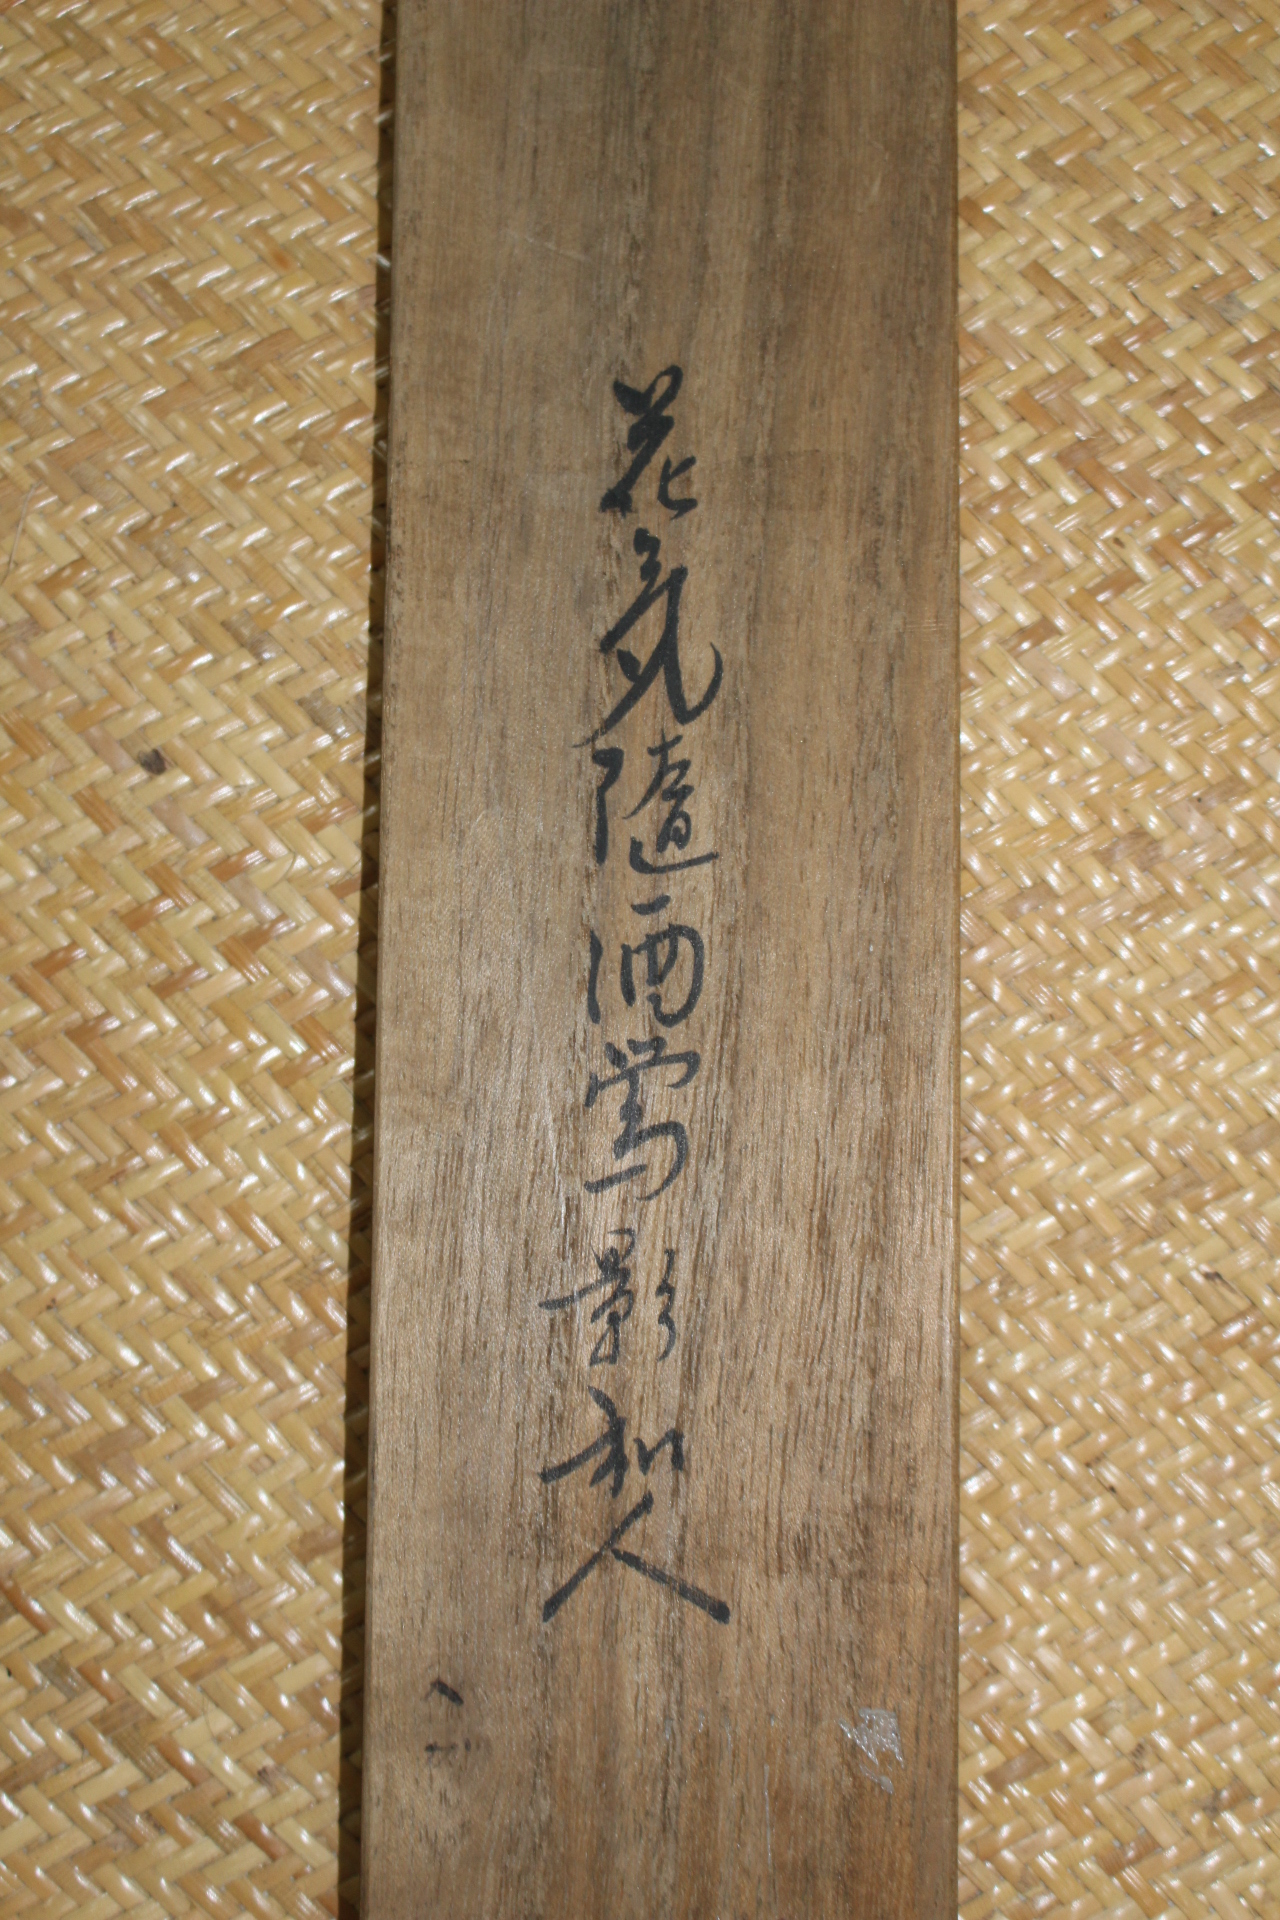 花気随酒鶯影和人